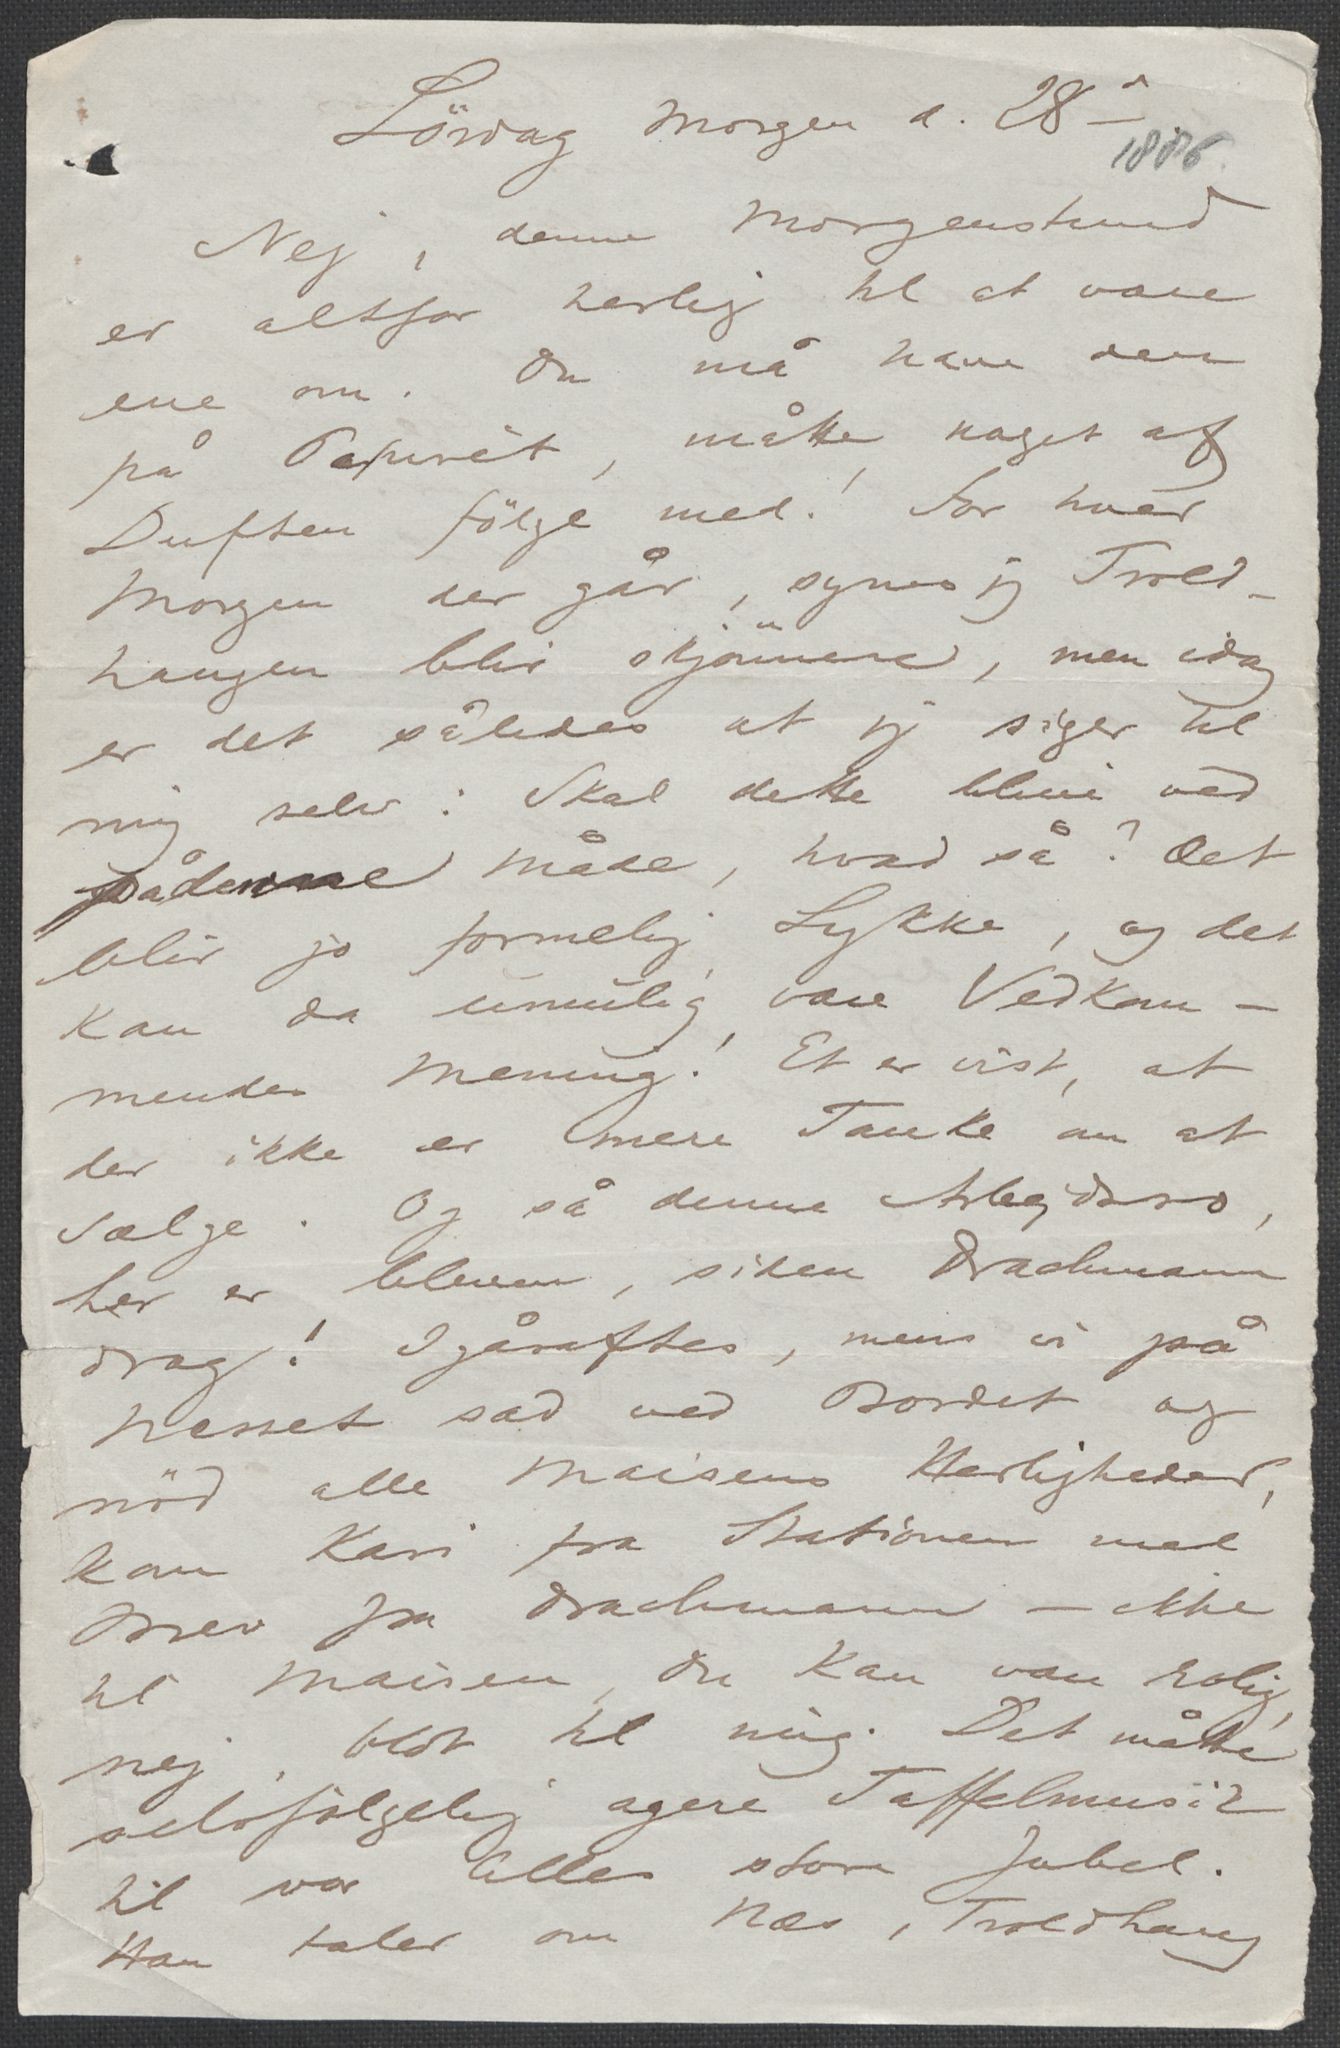 Lördag Morgen d. 28d
1886.
Nej, denne Morgenstund
er altfor herlig til at være
ene om. Du må have den
på Papiret, måtte noget af
Duften fölge med! For hver
Morgen der går, synes jeg Trold-
haugen blir skjönnere, men idag
er det således at jeg siger til
mig selv: Skal dette blive ved
pådenne Måde, hvad så? Det
blir jo formelig Lykke, og det
kan da umulig være Vedkom-
mendes Mening! Et er vist, at
der ikke er mere Tanke om at
sælge. Og så denne Arbejdsro,
her er bleven, siden Drachmann
drog! Igåraftes, mens vi på
Næsset sad ved Bordet og
nöd alle Maisens Herligheder,
kom Kari fra Stationen med
Brev fra Drachmann – ikke
til Maisen, du kan være rolig,
nej, blot til mig. Det måtte
selvfölgelig agere Taffelmusik
til vor Alles store Jubel.
Han taler om Næs, Troldhaug